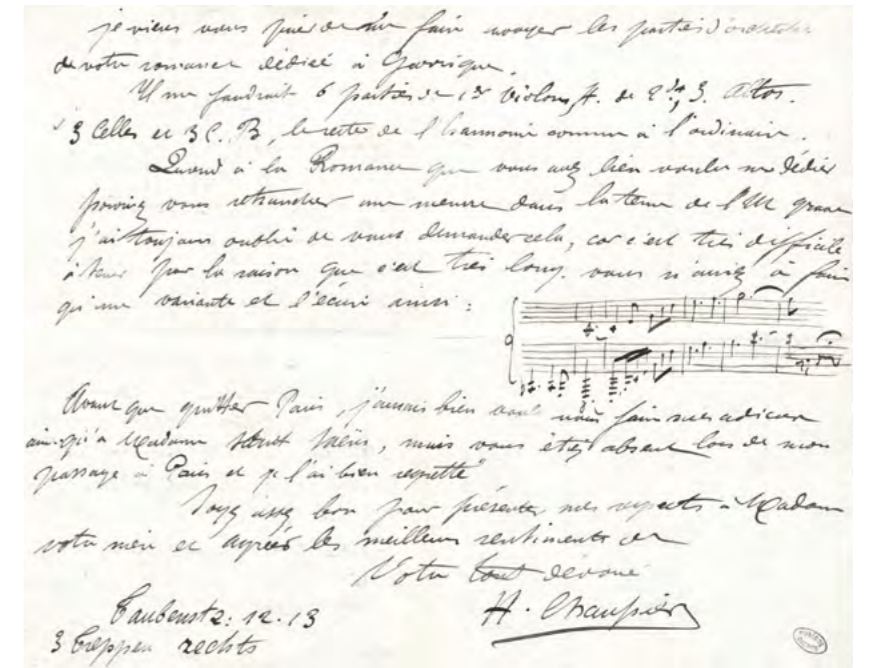 je viens vous prier de me faire envoyer les parties d'orchestre
de votre romance dédiée à Garrigue.
Il me faudrait 6 parties de 1er Violons, 4. de 2ds, 3. Altos.
3 Celles et 3 C. B, le reste de l'harmonie comme à l'ordinaire.
Quand à la Romance que vous avez bien voulu me dédier
pouviez vous retrancher une mesure dans la tenue de l'Ut grave
j'ai toujours oublié de vous demander cela, car c'est très difficile
à tenir par la raison que c'est très long. vous n'auriez à faire
qu'une variante et l'écrire ainsi :
Avant que quitter Paris, j'aurais bien voulu vous faire mes adieux
ainsi qu'à Madame Saint Saëns, mais vous étiez absent lors de mon
passage à Paris et je l'ai bien regretté
Soyez assez bon pour présenter mes respects à Madame
votre mère et agréés les meilleurs sentiments de
Votre tout dévoué
H. Chaussier
Taubenst 2: 12.13
3 Treppen rechts